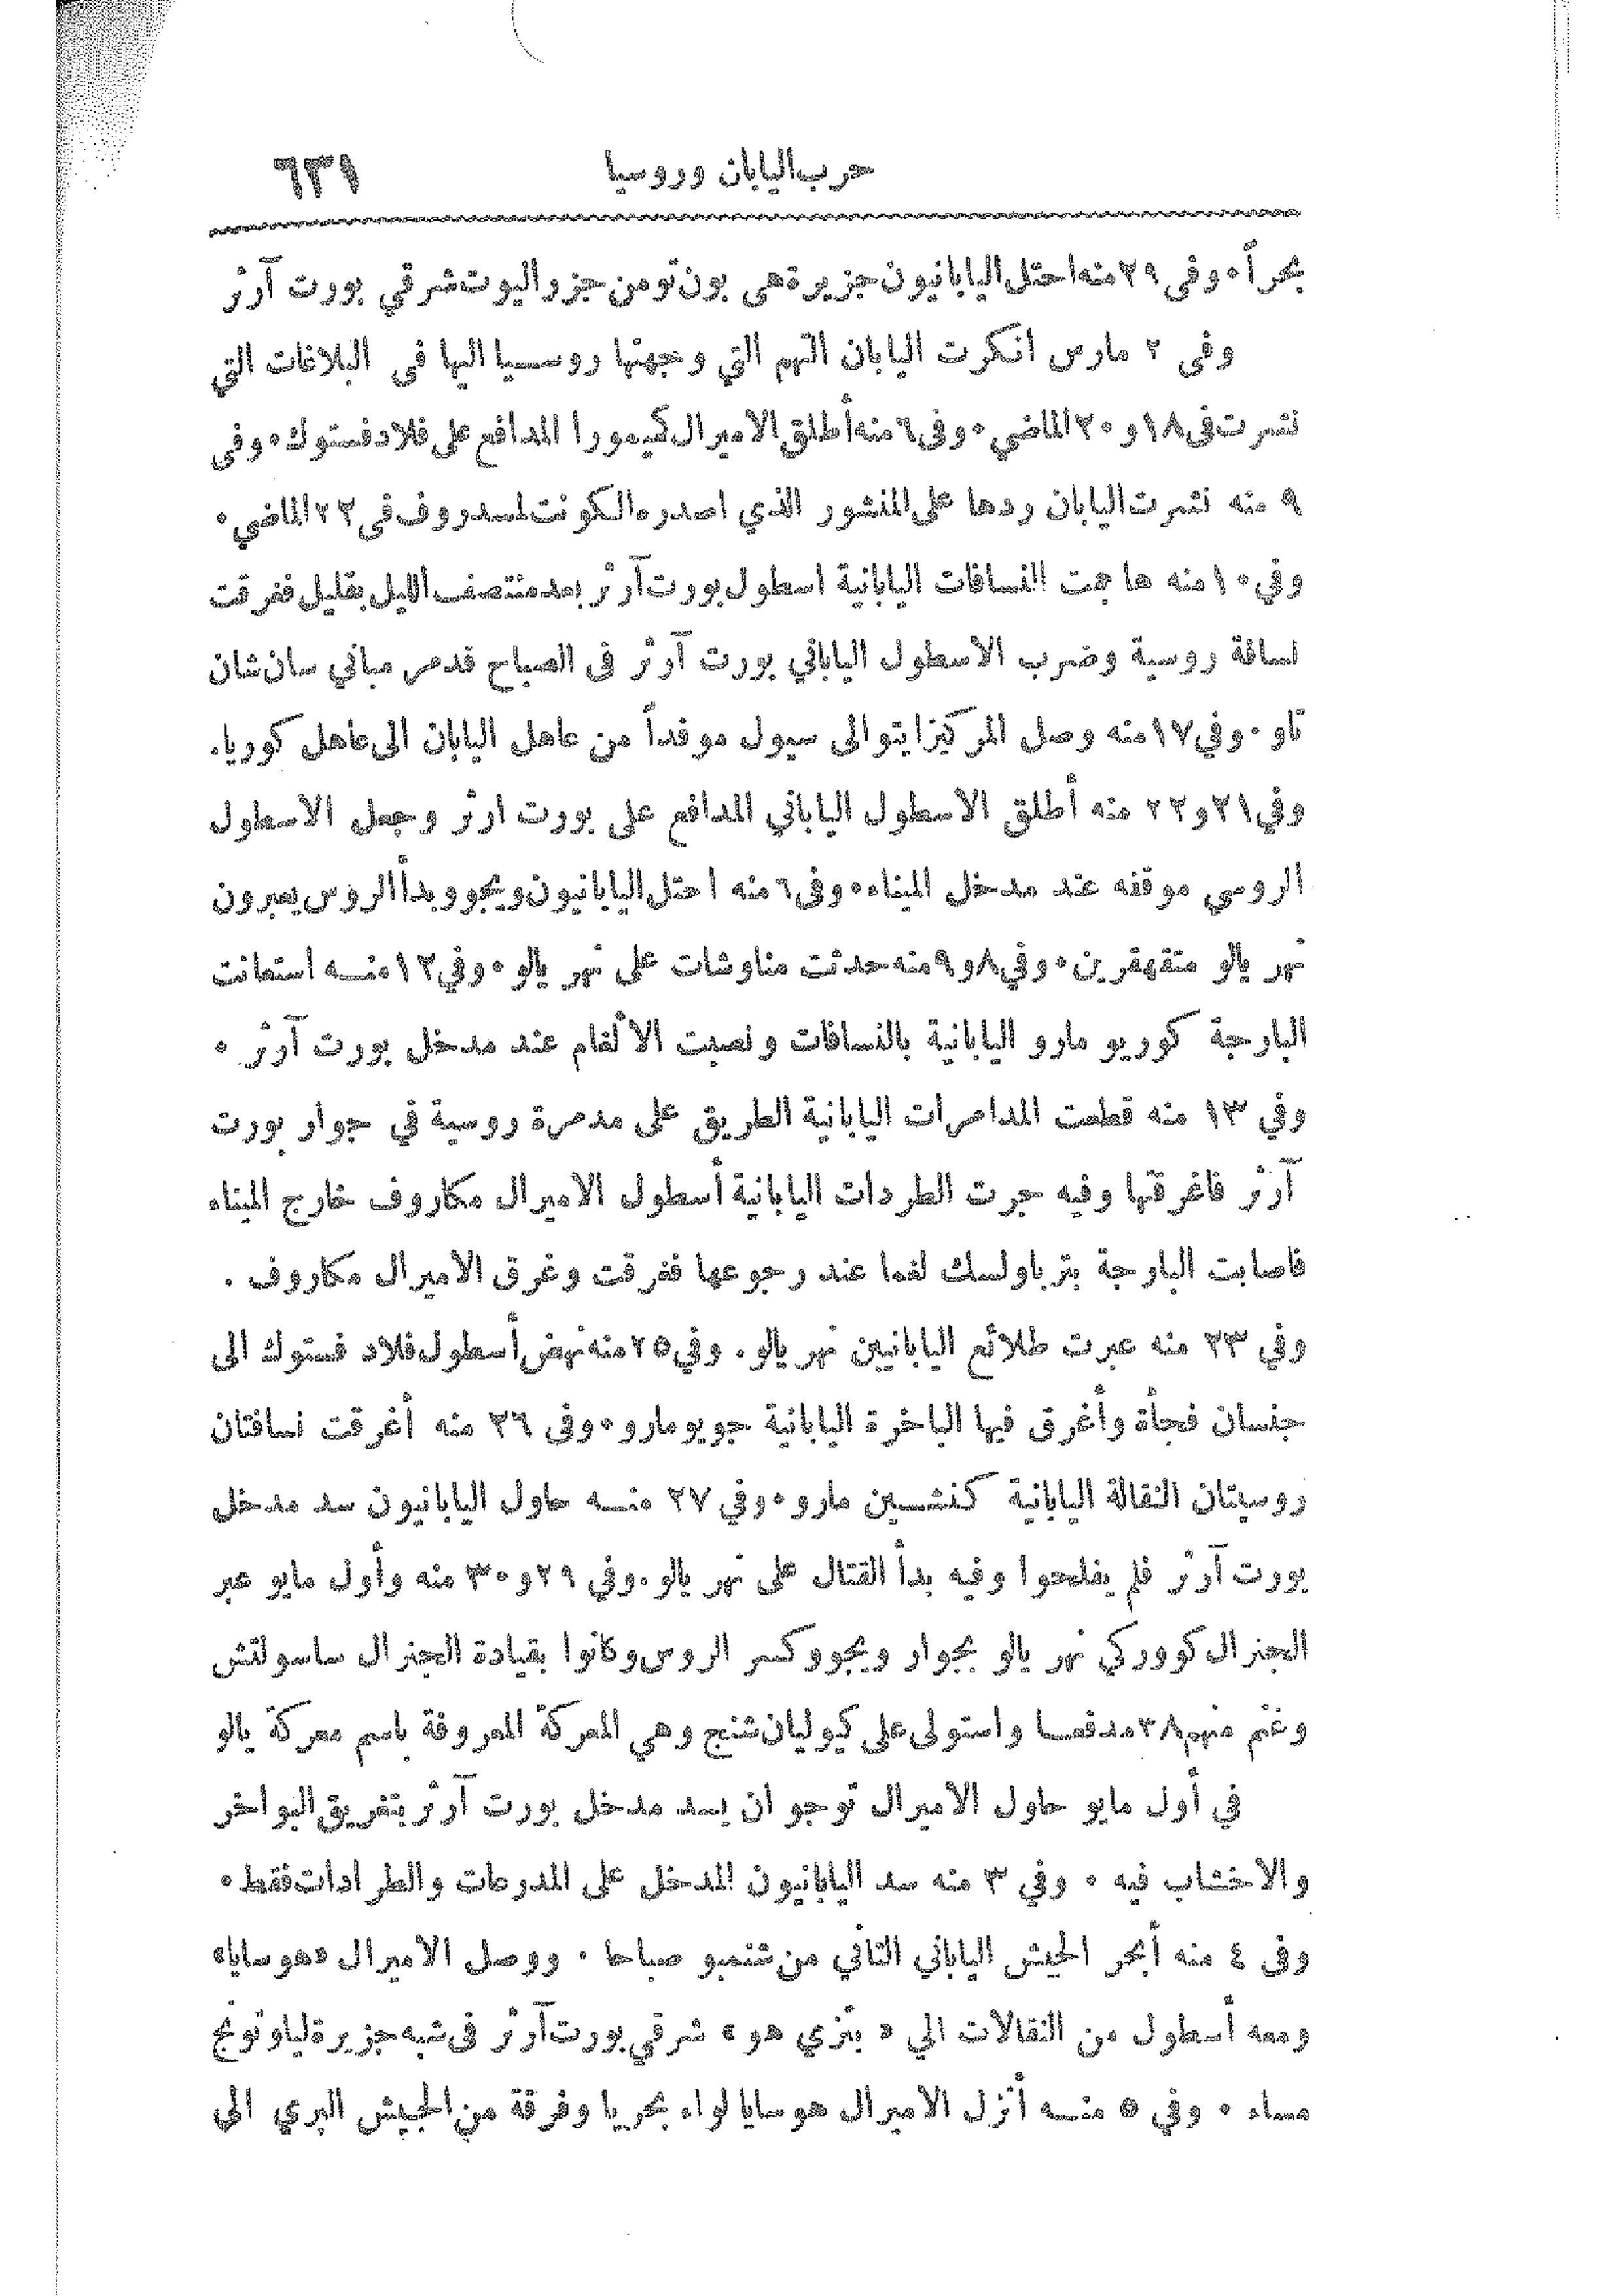 حرب اليابان وروسيا ٦٣١
بحراً ٠ وفى ٢٩ منه احتل اليابانيون جزيرة هى بون تو من جزر اليوت شرقي بورت آرثر
وفى ٢ مارس انكرت اليابان التهم التي وجهتها روسيا اليها فى البلاغات التي
نشرت فى ١٨ و ٢٠ الماضي ٠ وفى ٦ منه أطلق الاميرال كيمورا المدافع على فلادفستوك ٠ وفى
٩ منه نشرت اليابان ردها على المنشور الذي اصدره الكونت لمسدروف فى ٢٢ الماضي ٠
وفي ١٠ منه هاجمت النسافات اليابانية اسطول بورت آرثر بعد منتصف الليل بقليل ففرقت
نسافة روسية وضرب الاسطول الياباني بورت آرثر فى الصباح فدمر مباني سان شان
تاو ٠ وفي ١٧ منه وصل المركيز ايتو الى سيول موفداً من عاهل اليابان الى عاهل كوريا.
وفي ٢١ و ٢٢ منه أطلق الاسطول الياباني المدافع على بورت ارثر وجعل الاسطول
الروسي موقفه عند مدخل الميناء ٠ وفى ٦ منه احتل اليابانيون ويجو وبدأ الروس يعبرون
نهر يالو متقهقرين ٠ وفي ٨ و ٩ منه حدثت مناوشات على نهر يالو ٠ وفي ١٢ منه استعانت
البارجة كوريو مارو اليابانية بالنسافات ونصبت الألغام عند مدخل بورت آرثر ٠
وفي ١٣ منه قطعت المدامرات اليابانية الطريق على مدمرة روسية في جوار بورت
آرثر فاغرقتها وفيه جرت الطردات اليابانية أسطول الاميرال مكاروف خارج الميناء
فاصابت البارجة بتر باولسك لغما عند رجوعها ففرقت وغرق الاميرال مكاروف .
وفي ٢٣ منه عبرت طلائع اليابانيين نهر يالو. وفي ٢٥ منه نهض أسطول فلاد فستوك الى
جنسان فجأة وأغرق فيها الباخرة اليابانية جويو مارو ٠ وفى ٢٦ منه أغرقت نسافتان
روسيتان النقالة اليابانية كنشين مارو ٠ وفي ٢٧ منه حاول اليابانيون سد مدخل
بورت آرثر فلم يفلحوا وفيه بدأ القتال على نهر يالو. وفي ٢٩ و ٣٠ منه وأول مايو عبر
الجنرال كوروكي نهر يالو بجوار ويجو وكسر الروس وكانوا بقيادة الجنرال ساسولتش
وغنم منهم ٢٨ مدفعا واستولى على كيوليان شنج وهي المعركة المعروفة باسم معركة يالو
في أول مايو حاول الاميرال توجو ان يسد مدخل بورت آرثر بتغريق البواخر
والاخشاب فيه ٠ وفي ٣ منه سد اليابانيون المدخل على المدرعات والطرادات فقط ٠
وفى ٤ منه أبحر الجيش الياباني الثاني من شنمبو صباحا ٠ ووصل الاميرال «هوسايا»
ومعه أسطول من النقالات الي « بتزي هو » شرقي بورت آرثر فى شبه جزيرة لياوتونج
مساء ٠ وفي ٥ منه أنزل الاميرال هوسايا لواء بحريا وفرقة من الجيش البري الي